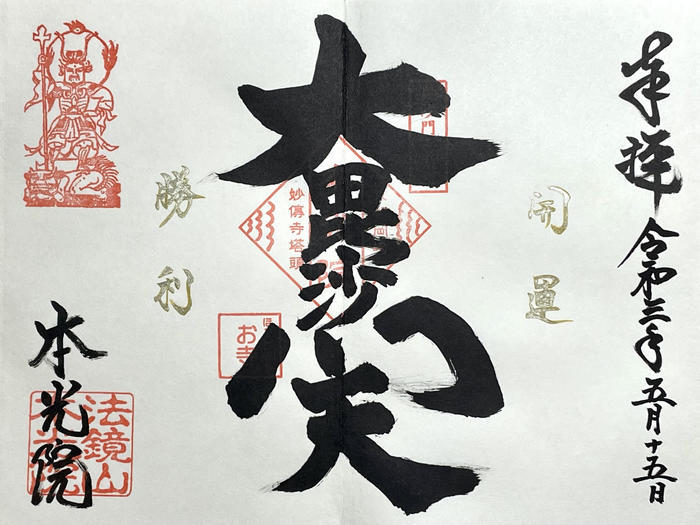 奉拝 令和三年五月十五日
開運
大毘沙門天
妙傳寺塔頭
お寺
勝利
本光院
法鏡山